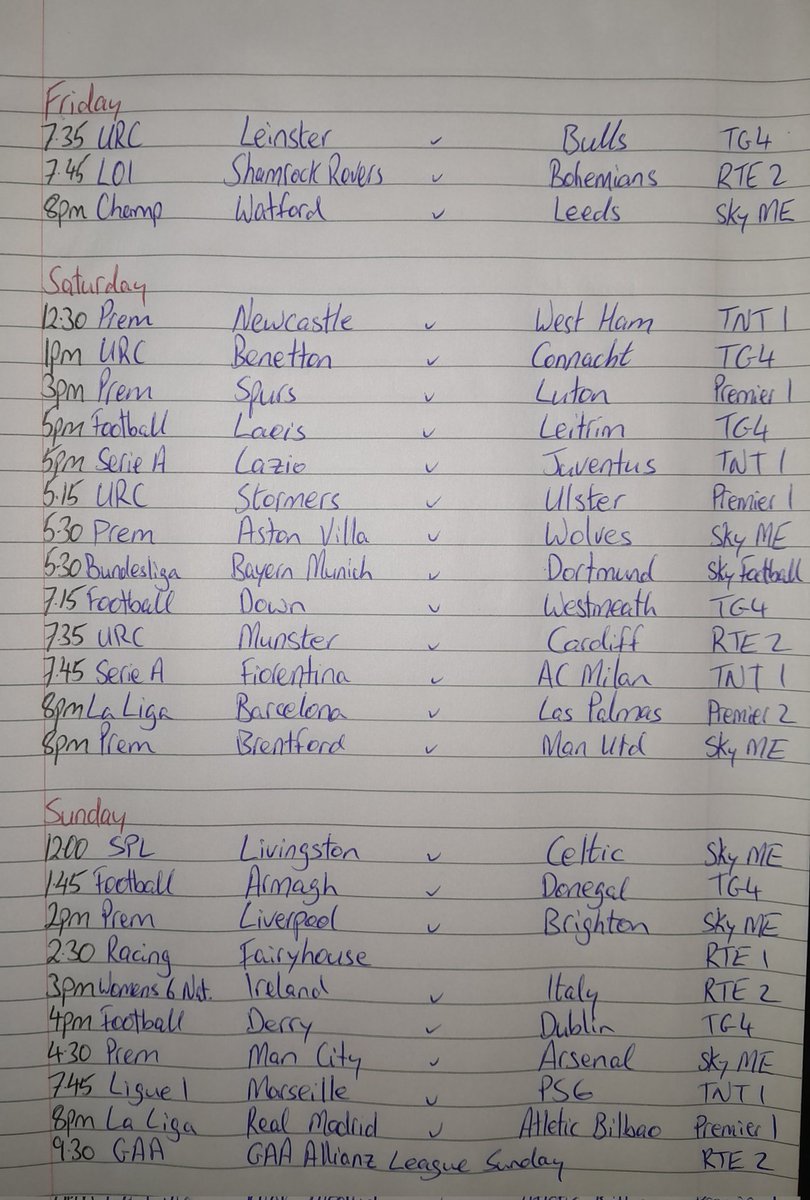 Friday
7.35 URC Leinster v Bulls TG4
7.45 LOI Shamrock Rovers v Bohemians RTE 2
8pm Champ Watford v Leeds Sky ME
Saturday
12.30 Prem Newcastle v West Ham TNT 1
1pm URC Benetton v Connacht TG4
3pm Prem Spurs v Luton Premier 1
5pm Football Laois v Leitrim TG4
5pm Serie A Lazio v Juventus TNT 1
5.15 URC Stormers v Ulster Premier 1
5.30 Prem Aston Villa v Wolves Sky ME
5.30 Bundesliga Bayern Munich v Dortmund Sky Football
7.15 Football Down v Westmeath TG4
7.35 URC Munster v Cardiff RTE 2
7.45 Serie A Fiorentina v AC Milan TNT 1
8pm La Liga Barcelona v Las Palmas Premier 2
8pm Prem Brentford v Man Utd Sky ME
Sunday
12.00 SPL Livingston v Celtic Sky ME
1.45 Football Armagh v Donegal TG4
2pm Prem Liverpool v Brighton Sky ME
2.30 Racing Fairyhouse RTE 1
3pm Womens 6 Nat. Ireland v Italy RTE 2
4pm Football Derry v Dublin TG4
4.30 Prem Man City v Arsenal Sky ME
7.45 Ligue 1 Marseille v PSG TNT 1
8pm La Liga Real Madrid v Atletic Bilbao Premier 1
9.30 GAA GAA Allianz League Sunday RTE 2